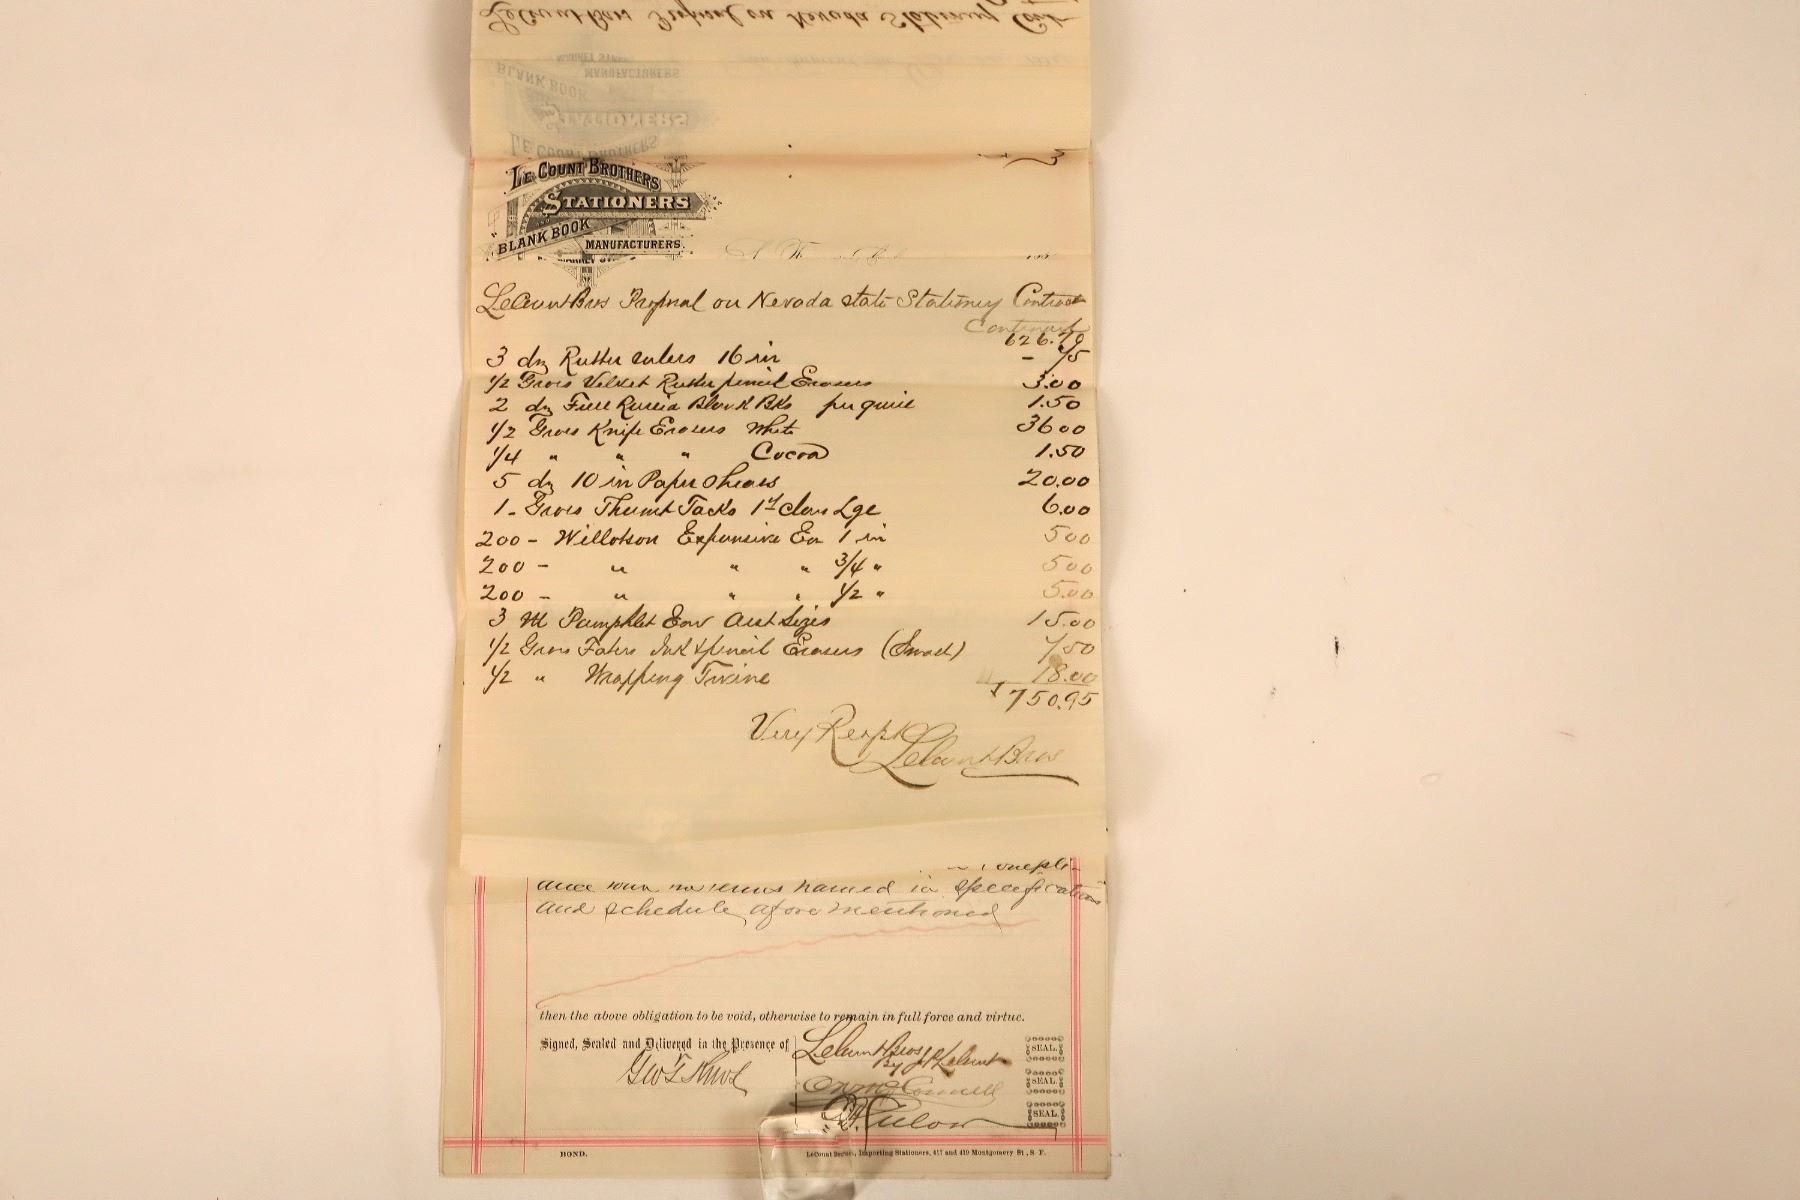 LeCount Bros Proposal on Nevada Stationery Cont
MARKET STREET
MANUFACTURERS
BLANK BOOK
STATIONERS
LE COUNT BROTHERS
3
LE COUNT BROTHERS
STATIONERS
AND
BLANK BOOK
MANUFACTURERS.
MARKET STREET
LeCount Bros Proposal on Nevada state Stationery Contract
Continued
626.70
3 dz Rubber rulers 16 in - 75
1/2 Gross Velvet Rubber pencil Erasers 3.00
2 dz Full Russia Blank Bks per quire 1.50
1/2 Gross Knife Erasers White 36 00
1/4 " " " Cocoa 1.50
5 dz 10 in Paper Shears 20.00
1 - Gross Thumb Tacks 1st class Lge 6.00
200 - Expansive En 1 in 5 00
200 - " " " 3/4 " 5 00
200 - " " " 1/2 " 5.00
3 M Pamphlet Env Asst Sizes 15.00
1/2 Gross Fabers Ink & pencil Erasers (Small) 7 50
1/2 " Wrapping Twine 18.00
$750.95
Very Respt
LeCount Bros
ance with the terms named in specifications
and schedule afore mentioned
then the above obligation to be void, otherwise to remain in full force and virtue.
Signed, Sealed and Delivered in the Presence of
LeCount Bros
By LeCount
SEAL.
SEAL.
SEAL.
BOND.
LeCount Bros., Importing Stationers, 417 and 419 Montgomery St., S. F.